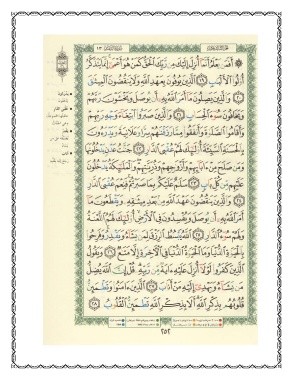 ۞ أَفَمَن يَعْلَمُ أَنَّمَا أُنزِلَ إِلَيْكَ مِن رَّبِّكَ الْحَقُّ كَمَنْ هُوَ أَعْمَىٰ إِنَّمَا يَتَذَكَّرُ
أُولُو الْأَلْبَابِ ١٩ الَّذِينَ يُوفُونَ بِعَهْدِ اللَّهِ وَلَا يَنقُضُونَ الْمِيثَاقَ
٢٠ وَالَّذِينَ يَصِلُونَ مَا أَمَرَ اللَّهُ بِهِ أَن يُوصَلَ وَيَخْشَوْنَ رَبَّهُمْ
وَيَخَافُونَ سُوءَ الْحِسَابِ ٢١ وَالَّذِينَ صَبَرُوا ابْتِغَاءَ وَجْهِ رَبِّهِمْ
وَأَقَامُوا الصَّلَاةَ وَأَنفَقُوا مِمَّا رَزَقْنَاهُمْ سِرًّا وَعَلَانِيَةً وَيَدْرَءُونَ
بِالْحَسَنَةِ السَّيِّئَةَ أُولَٰئِكَ لَهُمْ عُقْبَى الدَّارِ ٢٢ جَنَّاتُ عَدْنٍ يَدْخُلُونَهَا
وَمَن صَلَحَ مِنْ آبَائِهِمْ وَأَزْوَاجِهِمْ وَذُرِّيَّاتِهِمْ وَالْمَلَائِكَةُ يَدْخُلُونَ
عَلَيْهِم مِّن كُلِّ بَابٍ ٢٣ سَلَامٌ عَلَيْكُم بِمَا صَبَرْتُمْ فَنِعْمَ عُقْبَى الدَّارِ
٢٤ وَالَّذِينَ يَنقُضُونَ عَهْدَ اللَّهِ مِن بَعْدِ مِيثَاقِهِ وَيَقْطَعُونَ مَا
أَمَرَ اللَّهُ بِهِ أَن يُوصَلَ وَيُفْسِدُونَ فِي الْأَرْضِ أُولَٰئِكَ لَهُمُ اللَّعْنَةُ
وَلَهُمْ سُوءُ الدَّارِ ٢٥ اللَّهُ يَبْسُطُ الرِّزْقَ لِمَن يَشَاءُ وَيَقْدِرُ وَفَرِحُوا
بِالْحَيَاةِ الدُّنْيَا وَمَا الْحَيَاةُ الدُّنْيَا فِي الْآخِرَةِ إِلَّا مَتَاعٌ ٢٦ وَيَقُولُ
الَّذِينَ كَفَرُوا لَوْلَا أُنزِلَ عَلَيْهِ آيَةٌ مِّن رَّبِّهِ قُلْ إِنَّ اللَّهَ يُضِلُّ
مَن يَشَاءُ وَيَهْدِي إِلَيْهِ مَنْ أَنَابَ ٢٧ الَّذِينَ آمَنُوا وَتَطْمَئِنُّ
قُلُوبُهُم بِذِكْرِ اللَّهِ أَلَا بِذِكْرِ اللَّهِ تَطْمَئِنُّ الْقُلُوبُ ٢٨
٢٥٢